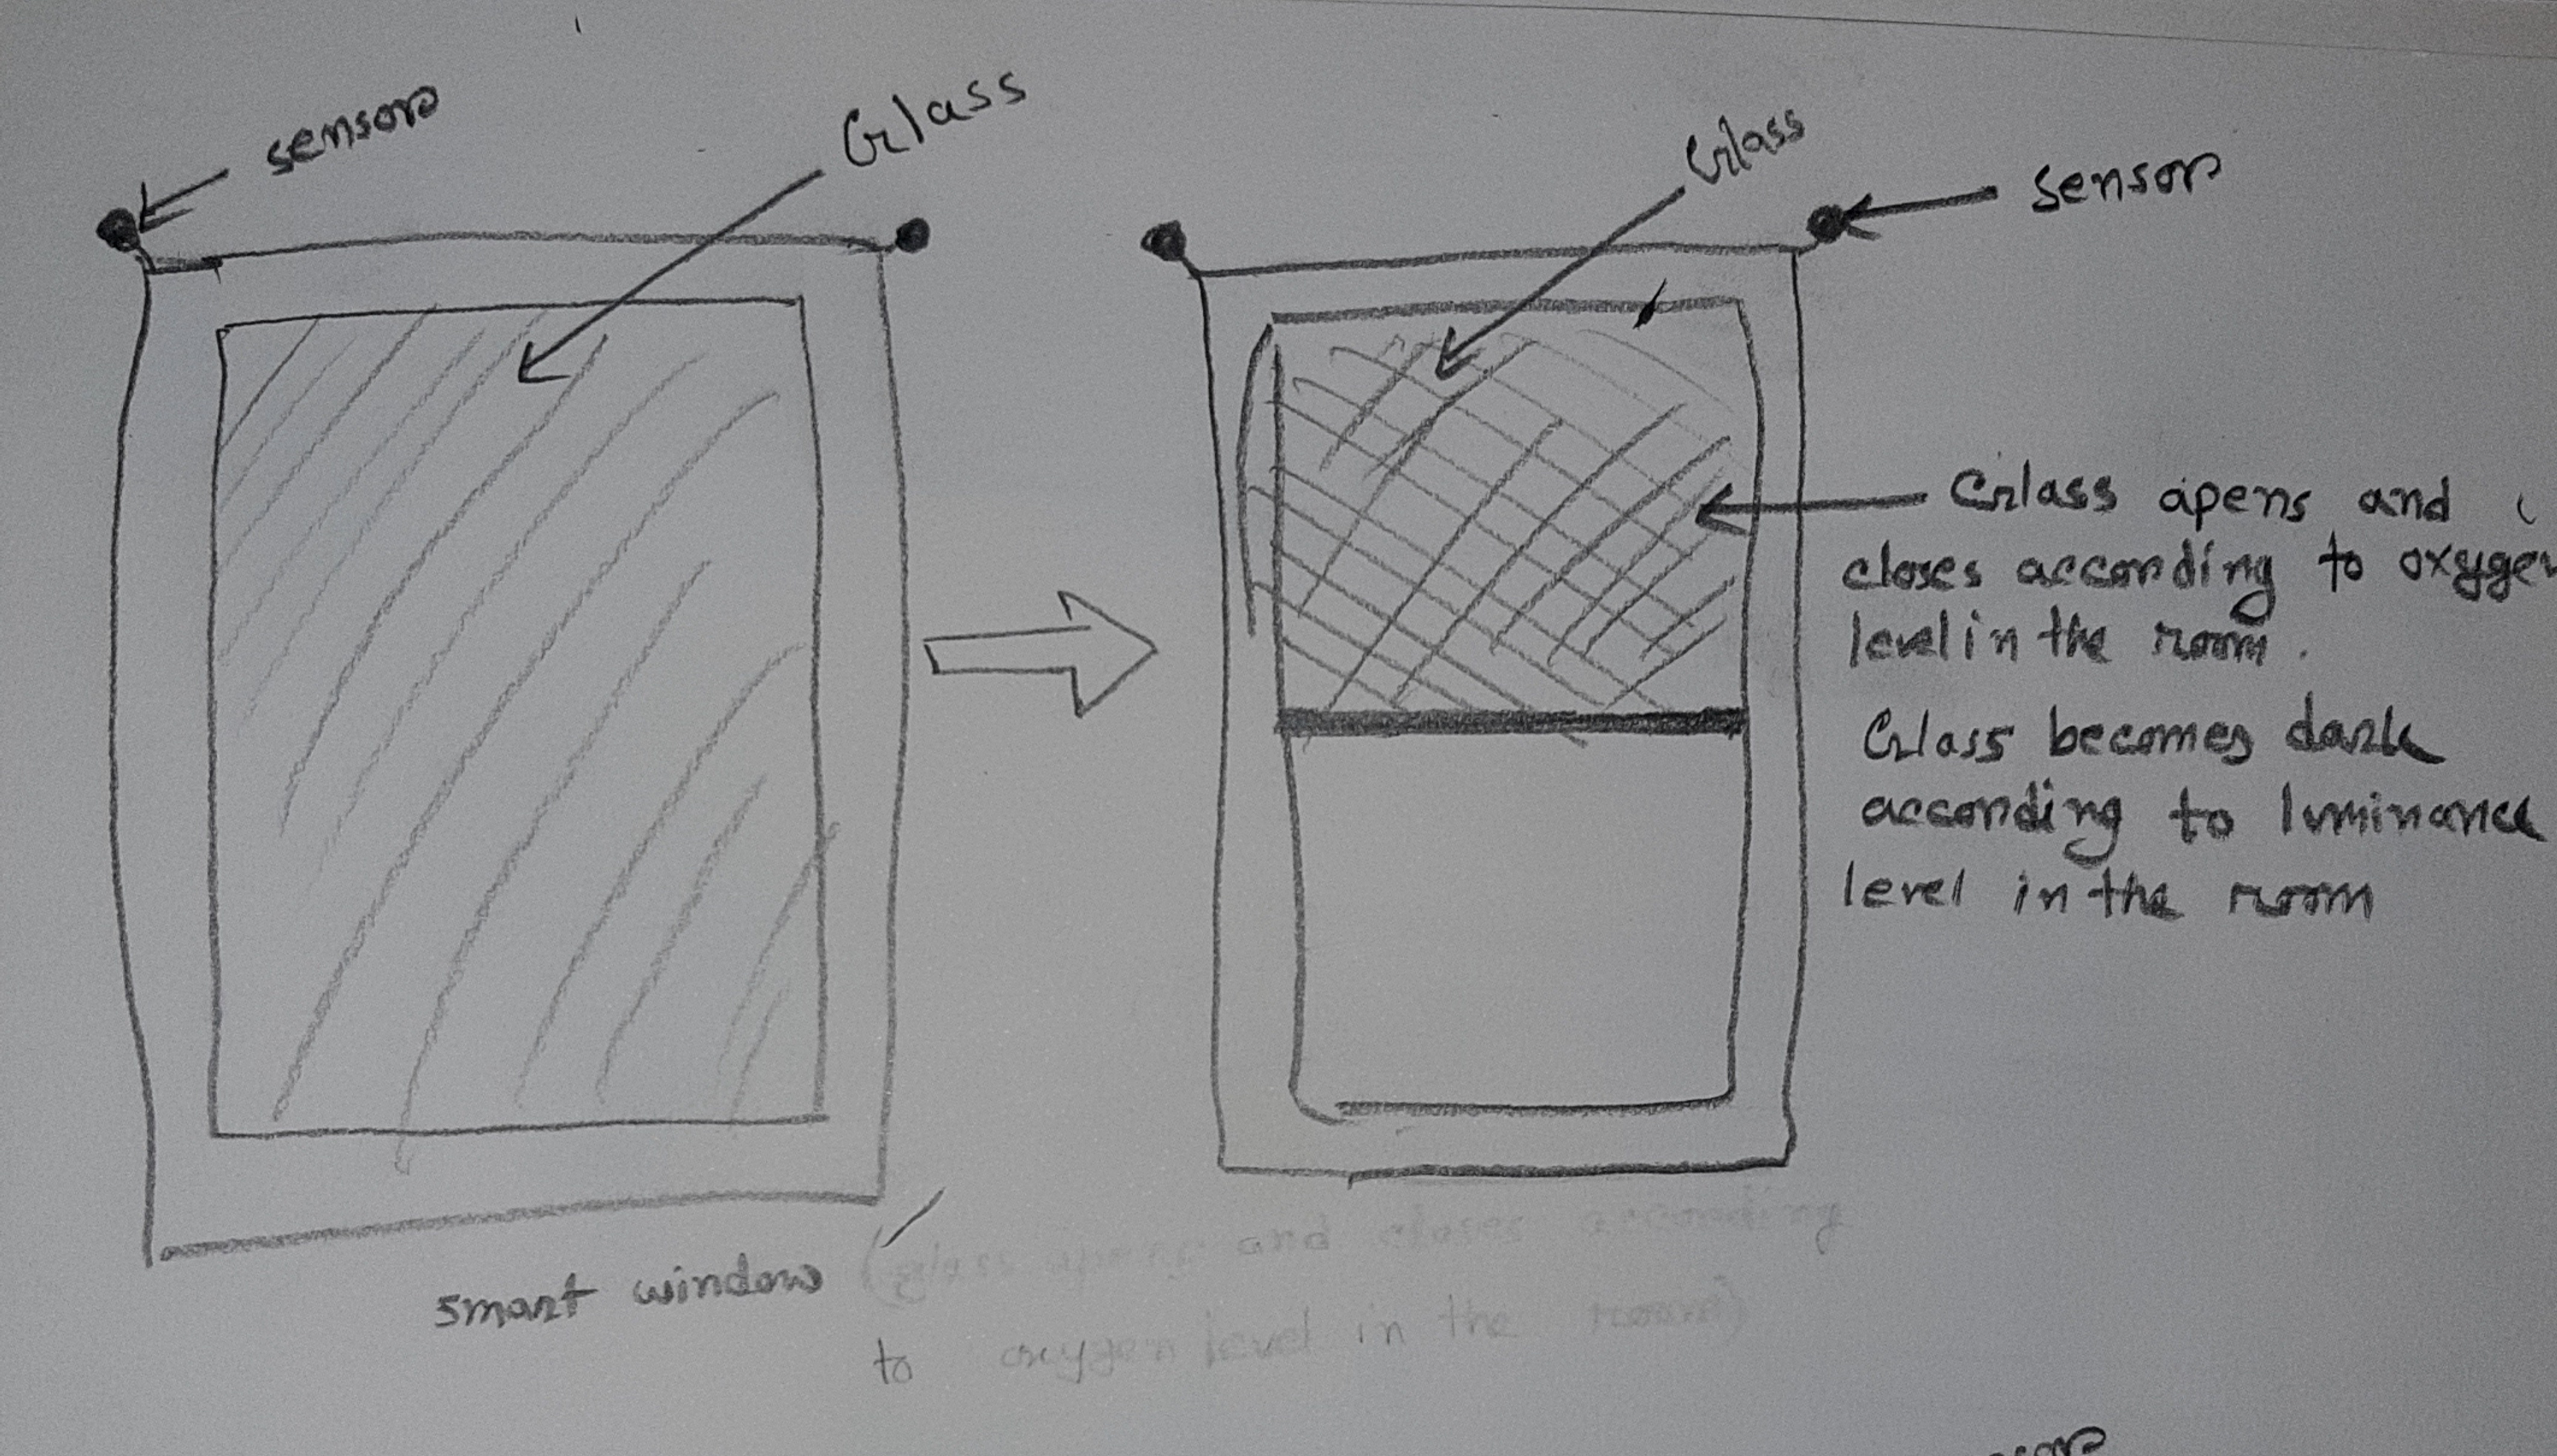 sensor
Glass
Glass
sensor
Glass opens and
closes according to oxygen
level in the room.
Glass becomes dark
according to luminance
level in the room
smart window (glass opens and closes according
to oxygen level in the room)